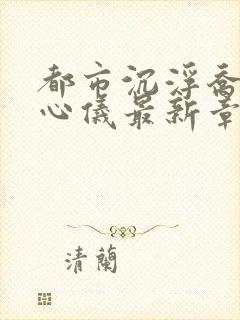 都市沉浮乔
心儀最新章
清蘭